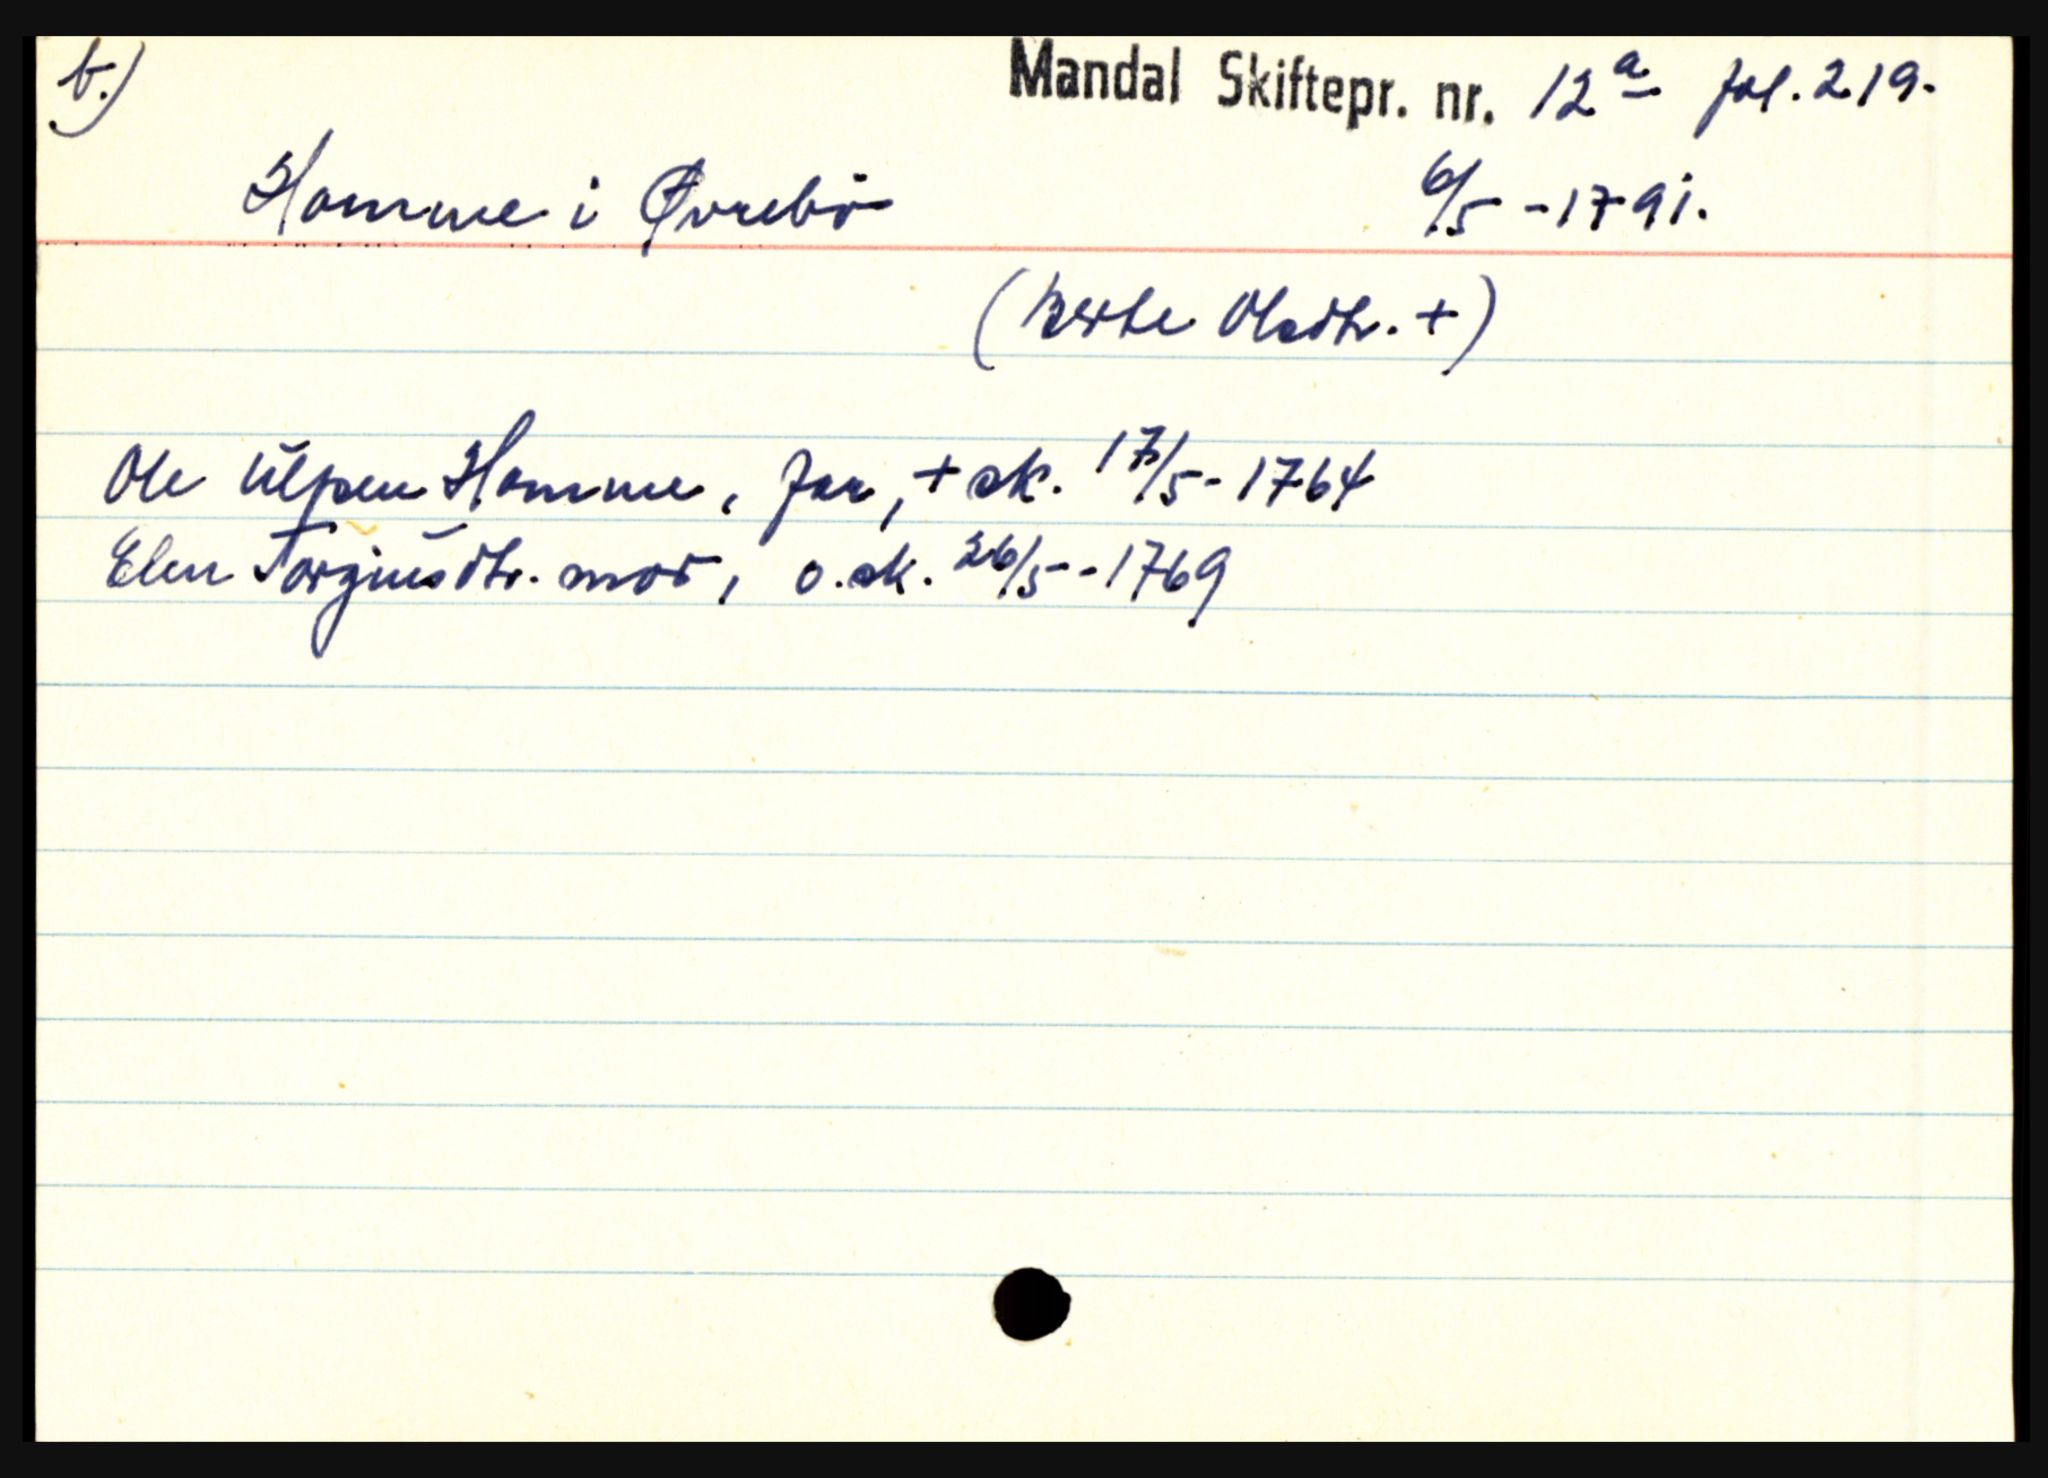 b.)
Mandal Skiftepr. nr. 12a fol. 219.
Homme i Øvrebö 6/5 - 1791.
(Berte Olsdtr. +)
Ole Ulpen Homme, far, + sk. 17/5 - 1764
Elen Torgiusdtr. mor, o. sk. 26/5 - 1769